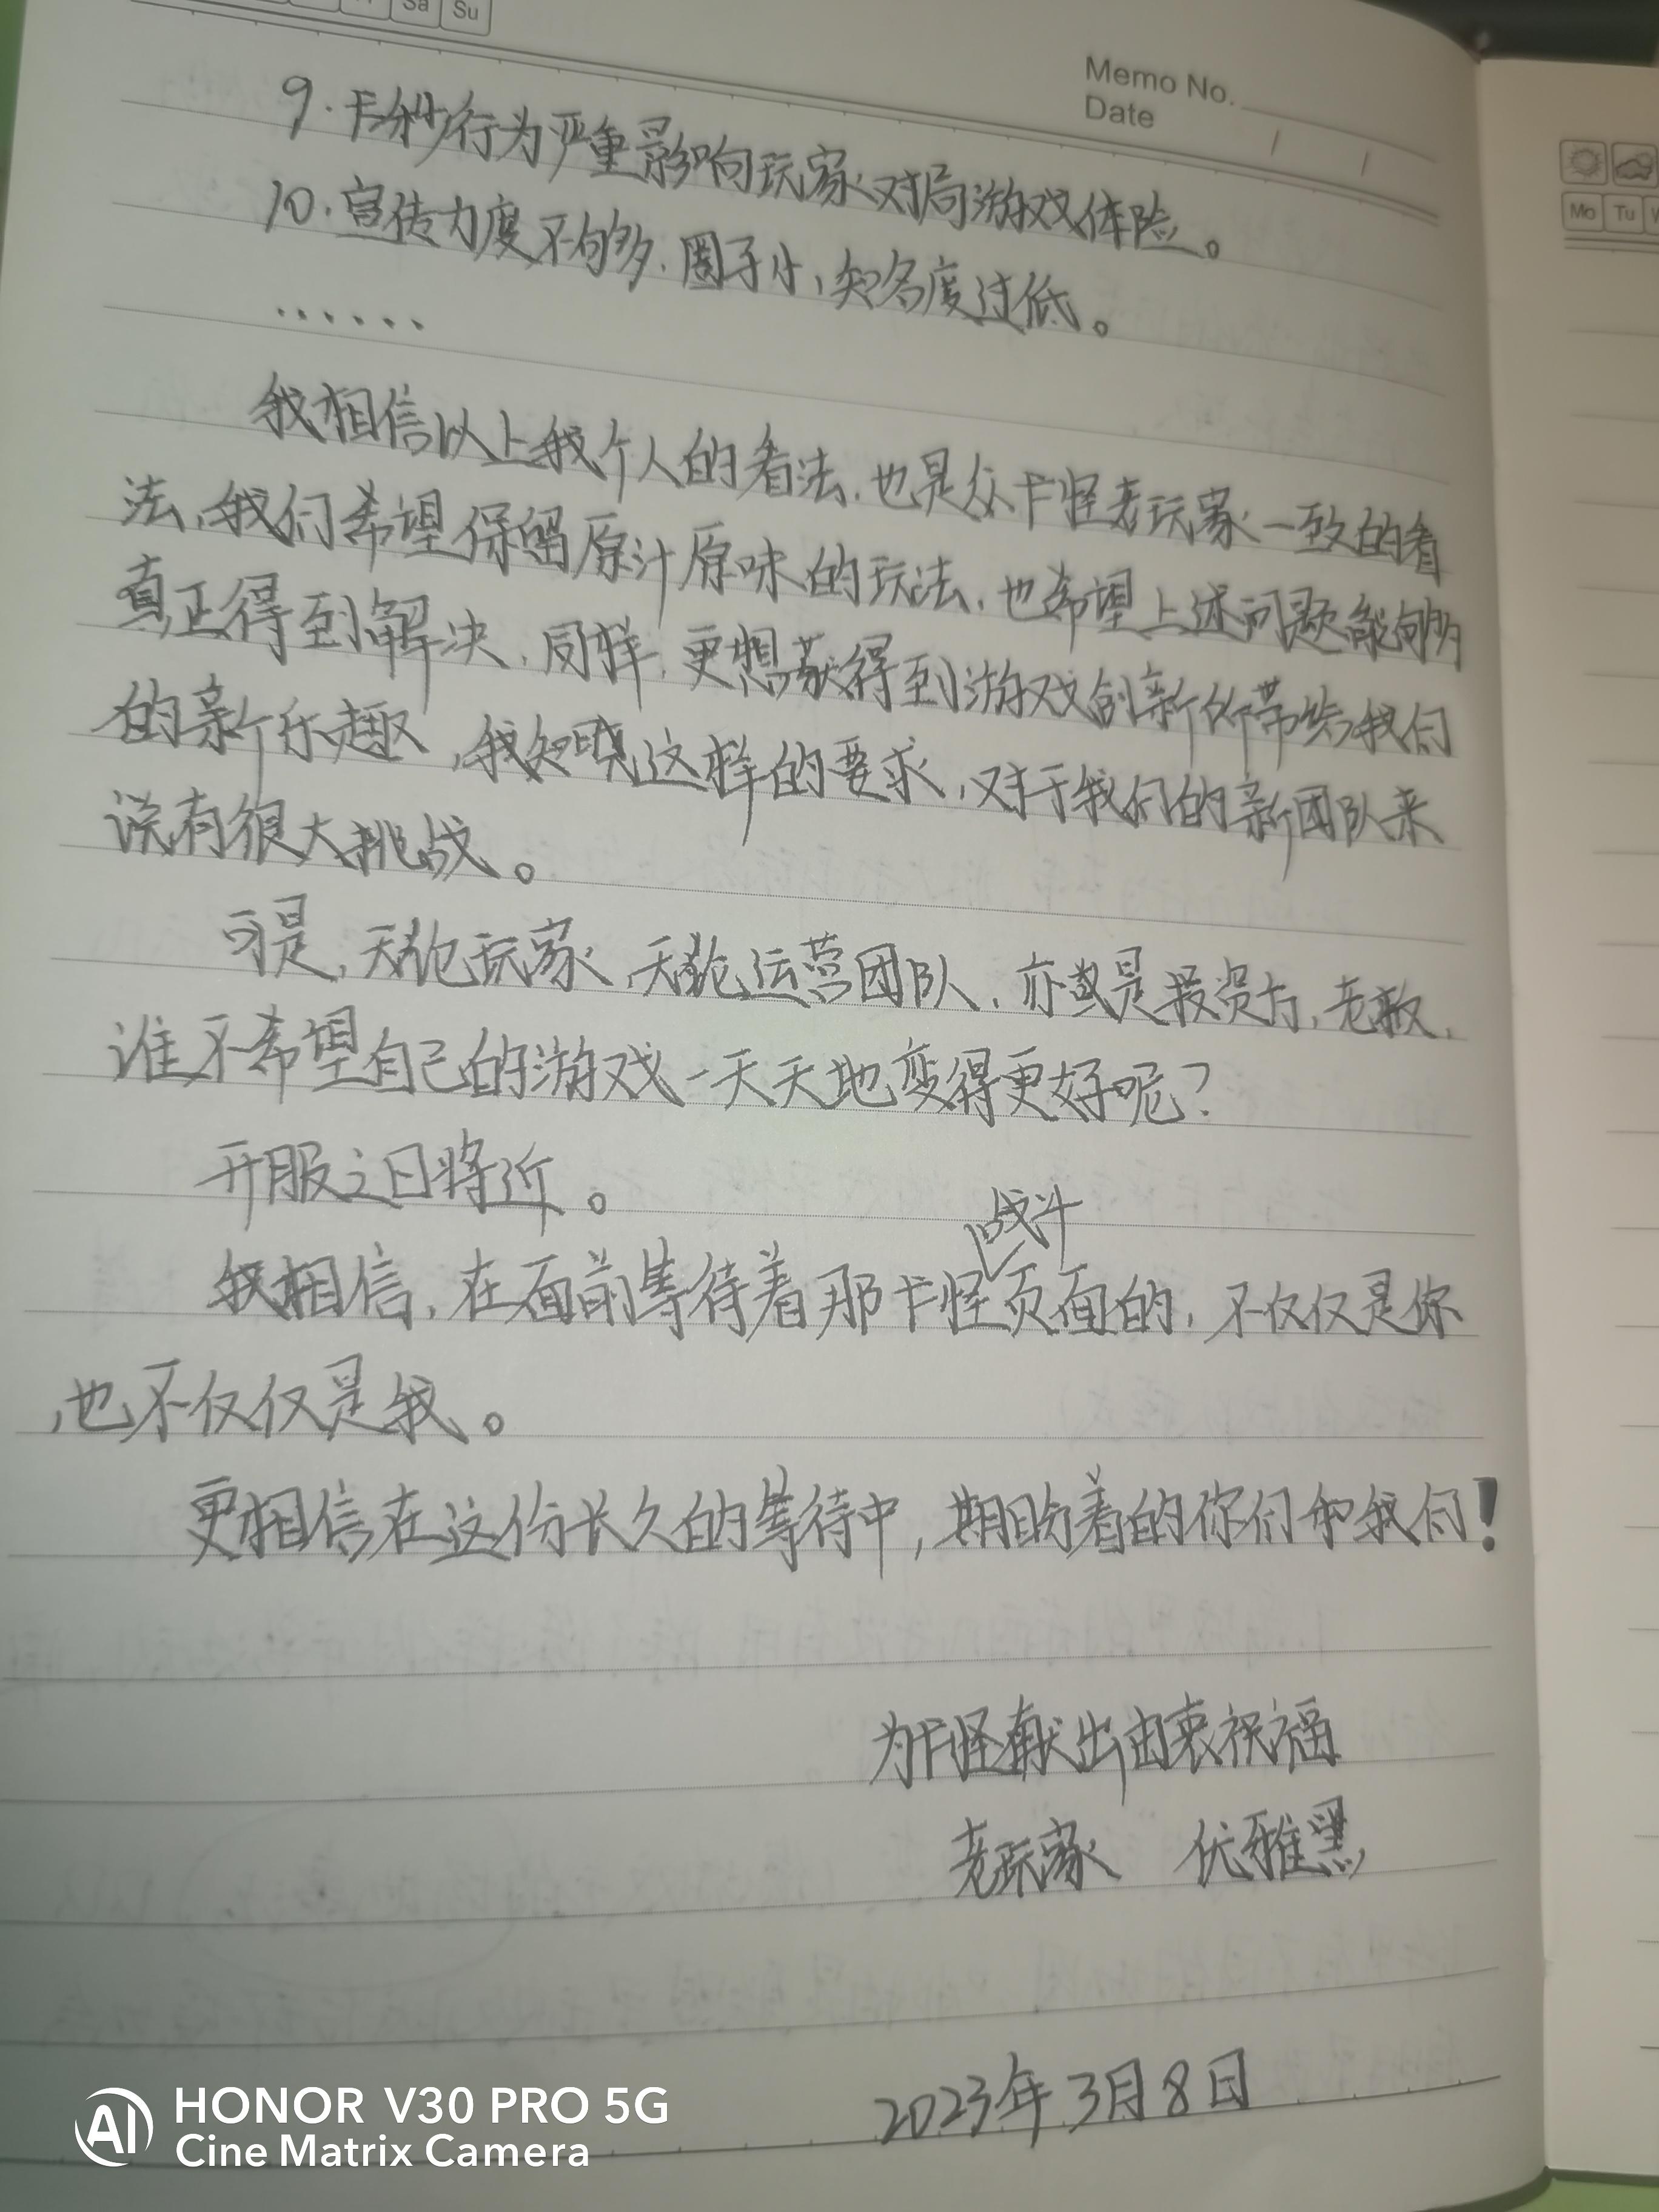 Sa Su
Memo No.
Date / /
9.卡秒行为严重影响玩家对局游戏体险。
10.宣传力度不够多,圈子小,知名度过低。
......
我相信以上我个人的看法,也是众卡怪老玩家一致的看
法,我们希望保留原汁原味的玩法,也希望上述问题能够
真正得到解决,同样,更想获得到游戏创新所带给我们
的新乐趣,我知晓这样的要求,对于我们的新团队来
说有很大挑战。
可是,无论玩家,无论运营团队,亦或是投资方,老板,
谁不希望自己的游戏一天天地变得更好呢?
开服之日将近。
战斗
我相信,在面前等待着那卡怪页面的,不仅仅是你
,也不仅仅是我。
更相信在这份长久的等待中,期盼着的你们和我们!
为卡怪献出由衷祝福
老玩家 优雅黑
2023年3月8日
Mo Tu
AI HONOR V30 PRO 5G
Cine Matrix Camera